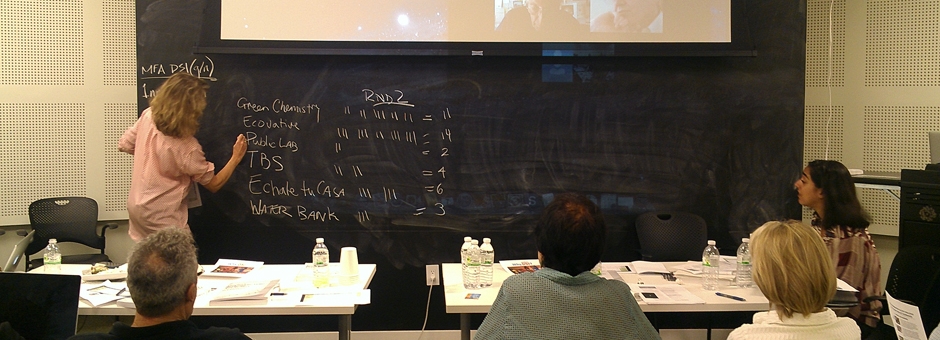 MFA DSI (9/11)
RND2
Green Chemistry || || || || || = 11
Ecovative ||| ||| ||| ||| ||| = 14
Public LAB || = 2
TBS || || = 4
Echale tu CASA ||| ||| = 6
WATER BANK ||| = 3